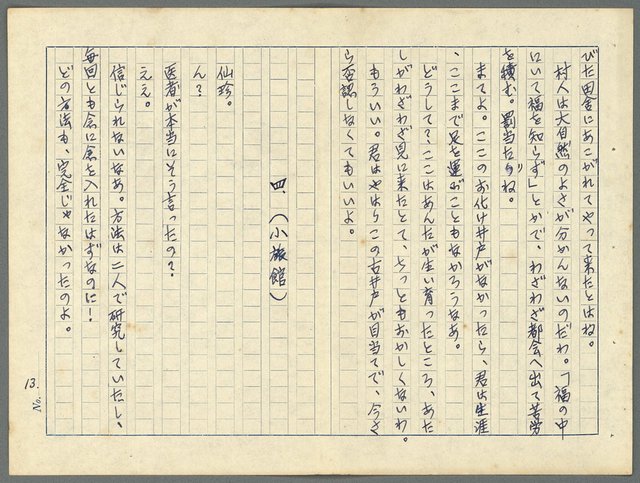 びた田舎にあこがれてやって来たとはね。
村人は大自然のよさが分かんないのだわ。「福の中
にいて福を知らず」とかで、わざわざ都会へ出て苦労
を積む。罰当たりね。
まてよ。ここのお化け井戸がなかったら、君は生涯
、ここまで足を運ぶこともなかろうなあ。
どうして?、ここはあんたが生い育ったところ、あた
しがわざわざ見に来たとて、ちっともおかしくないわ。
もういい。君はやはりこの古井戸が目当てで、今さ
ら否認しなくてもいいよ。
四、(小旅館)
仙珍。
ん?
医者が本当にそう言ったの?
ええ。
信じられないなあ。方法は二人で研究していたし、
毎回とも念に念を入れたはずなのに!
どの方法も、完全じゃなかったのよ。
No. 13.